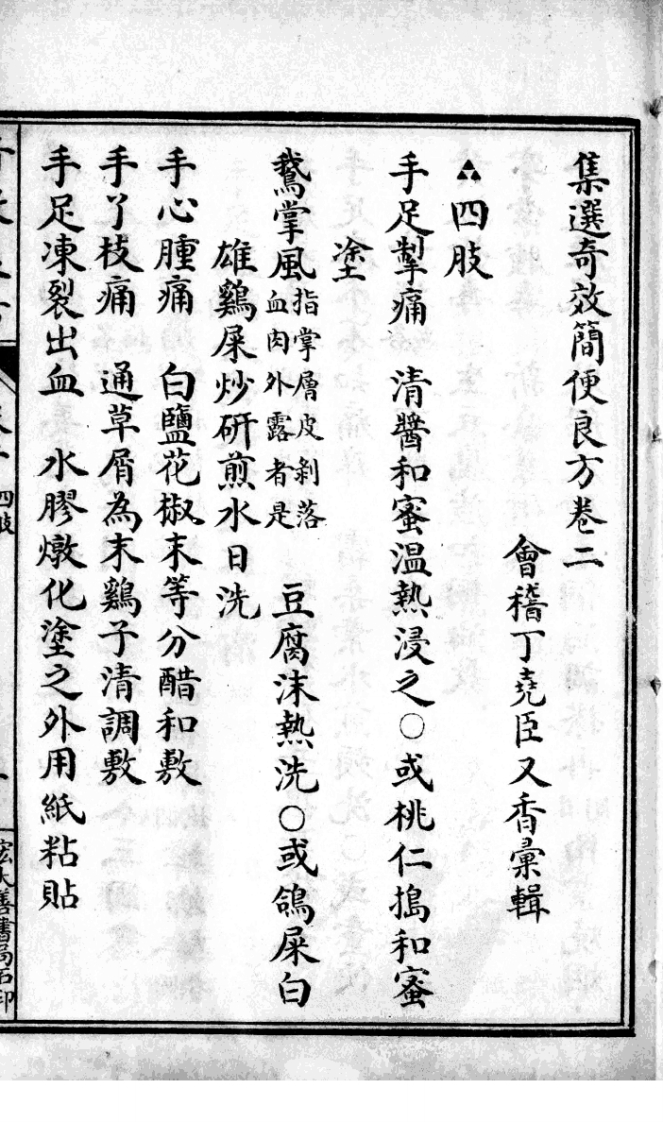 集選奇效簡便良方卷二
會稽丁堯臣又香彙輯
四肢
手足掣痛　清醬和蜜溫熱浸之○或桃仁搗和蜜
塗
鵝掌風指掌層皮剝落血肉外露者是　豆腐沫熱洗○或鴿屎白
雄鷄屎炒研煎水日洗
手心腫痛　白鹽花椒末等分醋和敷
手丫枝痛　通草屑為末鷄子清調敷
手足凍裂出血　水膠燉化塗之外用紙粘貼
四肢
宏大善書局石印